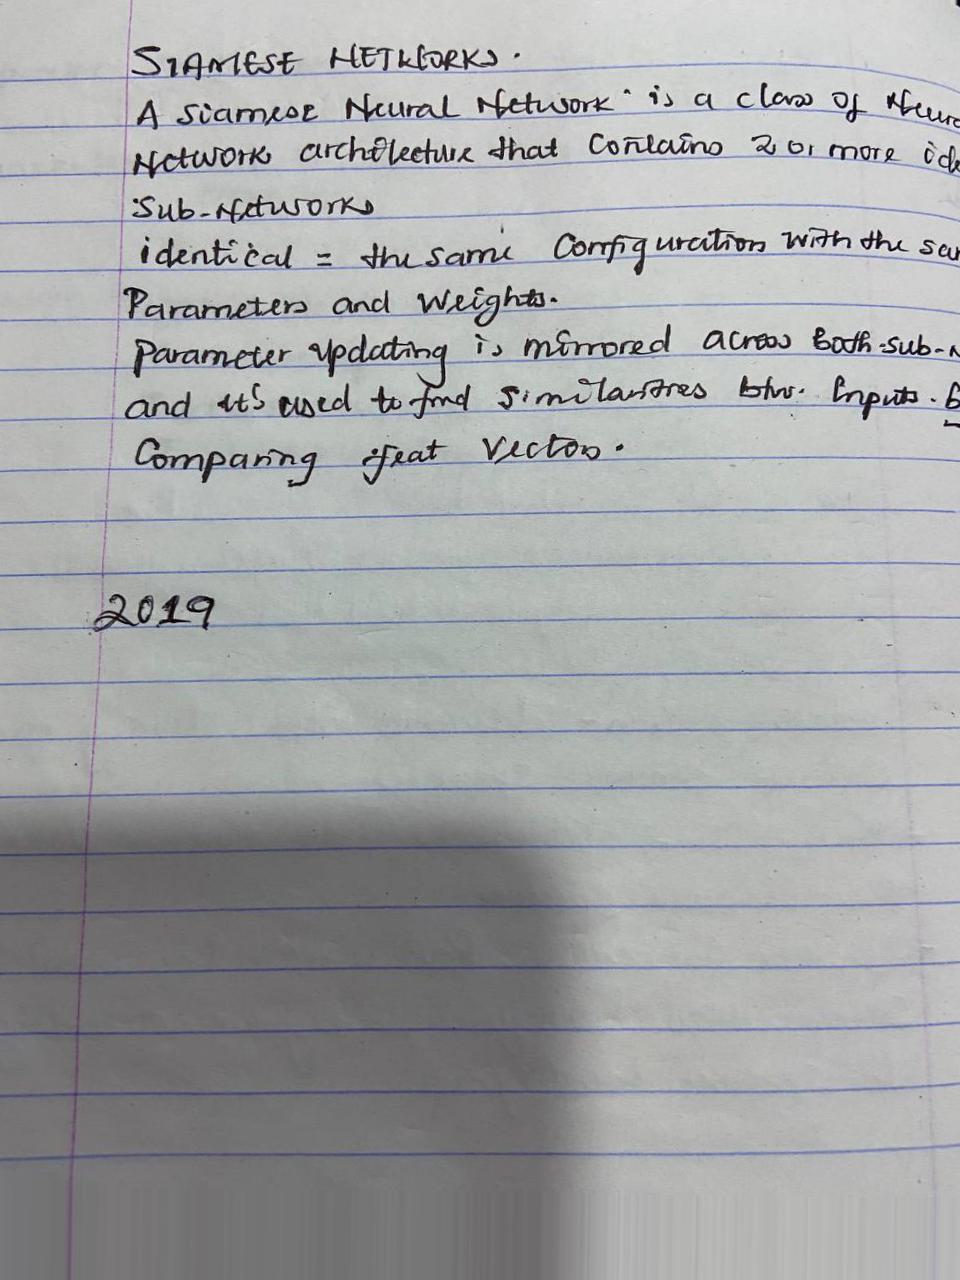 SIAMESE NETWORKS.
A Siamese Neural Network is a class of Neura
Network architecture that contains 2 or more ide
Sub-Networks
identical = the same Configuration with the sam
Parameters and Weights.
Parameter updating is mirrored across Both-sub-N
and it's used to find similarities btw. Inputs. b
Comparing feat Vectors.
2019